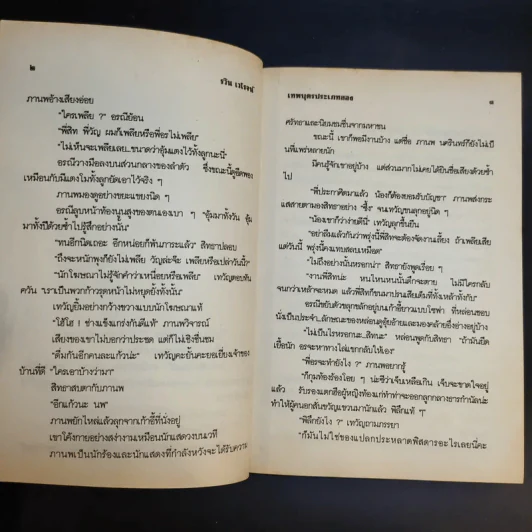 ๒
รวิน เนรจน์
ภานพอ้างเสียงอ่อย
"ใครเพลีย ?" อรณีย้อน
"พี่สิท พี่วัญ ผมก็เพลียหรือพี่อรไม่เพลีย"
"ไม่เห็นจะเพลียเลย..ขนาดว่าอุ้มแตงไว้ทั้งลูกนะนี่"
อรณีวางมือลงบนส่วนกลางของลำตัว ซึ่งขณะนี้ดูอืดพอง
เหมือนกับมีแตงโมทั้งลูกยัดเอาไว้จริง ๆ
ภานพมองดูอย่างขยะแขยงนิด ๆ
อรณีลูบหน้าท้องนูนสูงของตนเองเบา ๆ "อุ้มมาทั้งวัน อุ้ม
มาทั้งปีด้วยซ้ำไปรู้สึกอย่างนั้น"
"ทนอีกนิดเถอะ อีกหน่อยก็พ้นภาระแล้ว" สิทธาปลอบ
"ถึงจะหนักพุงก็ยังไม่เพลีย วัญล่ะจ๊ะ เพลียหรือเปล่าวันนี้?"
"นักโฆษณาไม่รู้จักคำว่าเหนื่อยหรือเพลีย" เทวัญตอบพ้น
ควัน "เราเป็นพวกก้าวรุดหน้าไม่หยุดยั้งทั้งนั้น"
เทวัญยิ้มอย่างกว้างขวางแบบนักโฆษณาแท้
"โฮ้โฮ ! ช่างแข็งแกร่งกันดีแท้" ภานพวิจารณ์
เสียงของเขาไม่บอกว่าประชด แต่ก็ไม่เชิงชื่นชม
"ดื่มกันอีกคนละแก้วน่ะ" เทวัญคะยั้นคะยอเยี่ยงเจ้าของ
บ้านที่ดี "ใครเอาบ้างว่ามา"
สิทธาสบตากับภานพ
"อีกแก้วนะ นพ"
ภานพยักไหล่แล้วลุกจากเก้าอี้ที่นั่งอยู่
เขาโค้งกายอย่างสง่างามเหมือนนักแสดงบนเวที
ภานพเป็นนักร้องและนักแสดงที่กำลังหวังจะได้รับความ
เทพบุตรประเภทสอง
๓
ศรัทธาและนิยมชมชื่นจากมหาชน
ขณะนี้ เขาก็พอมีงานบ้าง แต่ชื่อ ภานพ นครินทร์ก็ยังไม่เป็
นที่แพร่หลายนัก
มีคนรู้จักเขาอยู่บ้าง แต่ส่วนมากไม่เคยได้ยินชื่อเสียงด้วยซ้ำ
ไป
"พี่ประกาศิตมาแล้ว น้องก็ต้องยอมรับบัญชา" ภานพส่งกระ
แสสายตามองสิทธาอย่าง "ซึ้ง" จนเทวัญขนลุกอยู่นิด ๆ
"น้องเขาก็ว่าง่ายดีนี่" เทวัญลุกขึ้นยืน
"อย่าลืมแล้วกันว่าพรุ่งนี้พี่สิทจะต้องจัดงานเลี้ยง ถ้าเพลียเสีย
แต่วันนี้ พรุ่งนี้คงแทบสลบเหมือด"
"ไม่ถึงอย่างนั้นหรอกน่า" สิทธายังพูดเรื่อย ๆ
"งานพี่สิทน่ะ หนไหนหนนั้นดึกจะตาย ไม่มีใครกลับ
จนกว่าเหล้าจะหมด แล้วพี่สิทก็ขนมาปรนเสียเต็มที่ทั้งเหล้าทั้งกับ"
อรณีขยับตัวลุกขลักอยู่บนเก้าอี้ยาวแบบโซฟา ที่หล่อนชอบ
นั่งเป็นประจำ..ลักษณะของหล่อนดูอุ้ยอ้ายและมองคล้ายอึ่งอ่างอยู่บ้าง
"ไม่เป็นไรหรอกนะ..สิทนะ" หล่อนพูดกับสิทธา "ถ้ามันยืด
เยื้อนัก อรจะหาทางไล่แขกกลับให้เอง"
"พี่อรจะทำยังไง ?" ภานพอยากรู้
"ก็กุมท้องร้องโอย ๆ น่ะซีว่าเจ็บเหลือเกิน เจ็บจะขาดใจอยู่
แล้ว รับรองแตกฮือผู้หญิงท้องแก่ทำท่าจะออกลูกกลางธารกำนัลน่ะ
ทำให้ผู้คนอกสั่นขวัญแขวนมานักแล้ว พิลึกแท้ ๆ"
"พิลึกยังไง ?" เทวัญถามภรรยา
"ก็มันไม่ใช่ของแปลกประหลาดพิสดารอะไรเลยนี่คะ